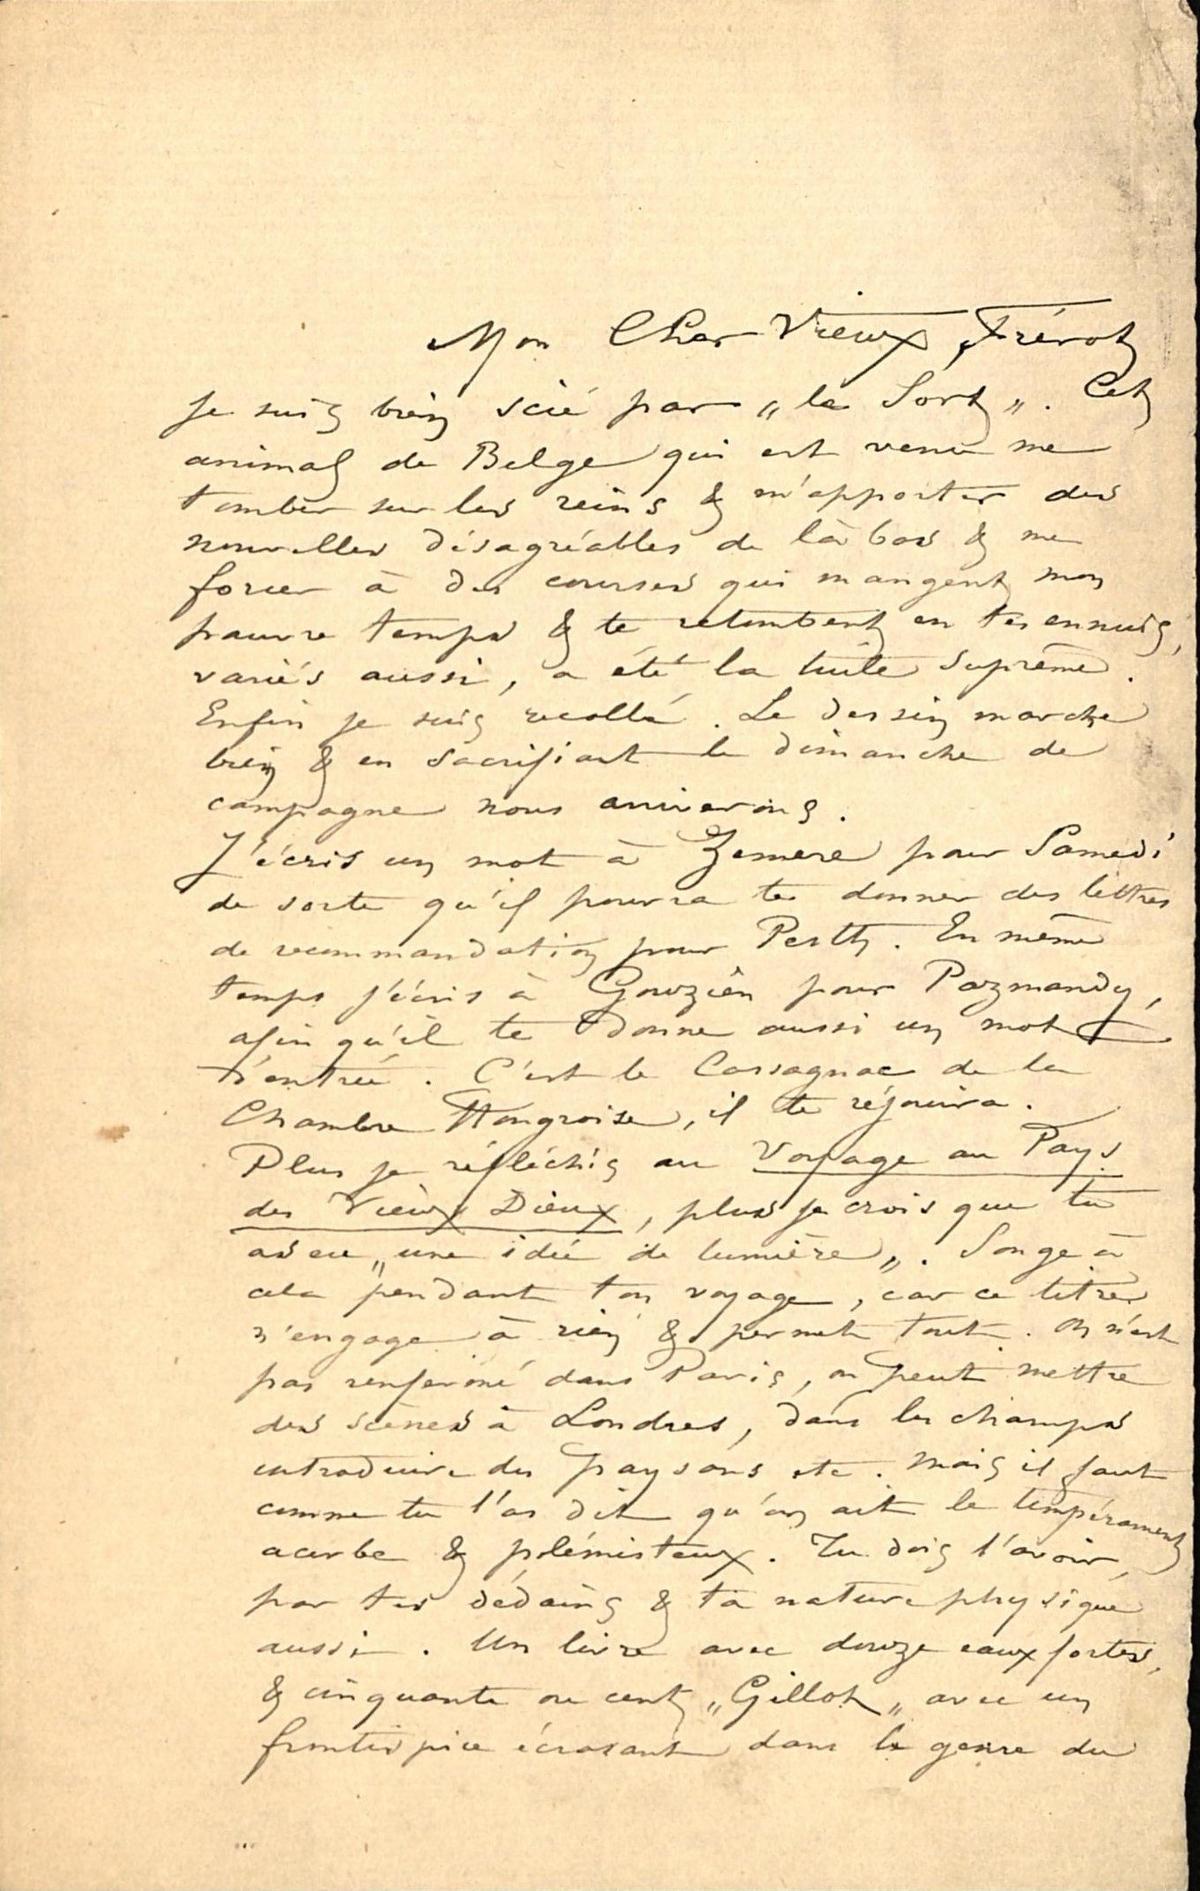 Mon Cher Vieux Frérot
Je suis bien scié par „le Sort„. Cet
animal de Belge qui est venu me
tomber sur les reins & m'apporter des
nouvelles désagréables de là bas & me
forcer à des courses qui mangent mon
pauvre temps & te retombent en tes ennuis,
variés aussi, a été la tuile suprême.
Enfin je suis recollé. Le dessin marche
bien & en sacrifiant le dimanche de
campagne nous arriverons.
J'écris un mot à Zemere pour Samedi
de sorte qu'il pourra te donner des lettres
de recommandation pour Pesth. En même
temps j'écris à Gouzien pour Pazmandy,
afin qu'il te donne aussi un mot
d'entrée. C'est le Cassagnac de la
Chambre Hongroise, il te réjouira.
Plus je réfléchis au Voyage au Pays
des Vieux Dieux, plus je crois que tu
as eu „une idée de lumière„. Songe à
cela pendant ton voyage, car ce titre
n'engage à rien & permet tout. On n'est
pas renfermé dans Paris, on peut mettre
des scènes à Londres, dans les champs
introduire des paysans etc. Mais il faut
comme tu l'as dit qu'on ait le tempérament
acerbe & polémisteux. Tu dois l'avoir,
par tes dédains & ta nature physique
aussi. Un livre avec douze eaux fortes,
& cinquante ou cent „Gillot„ avec un
frontispice écrasant dans le genre du